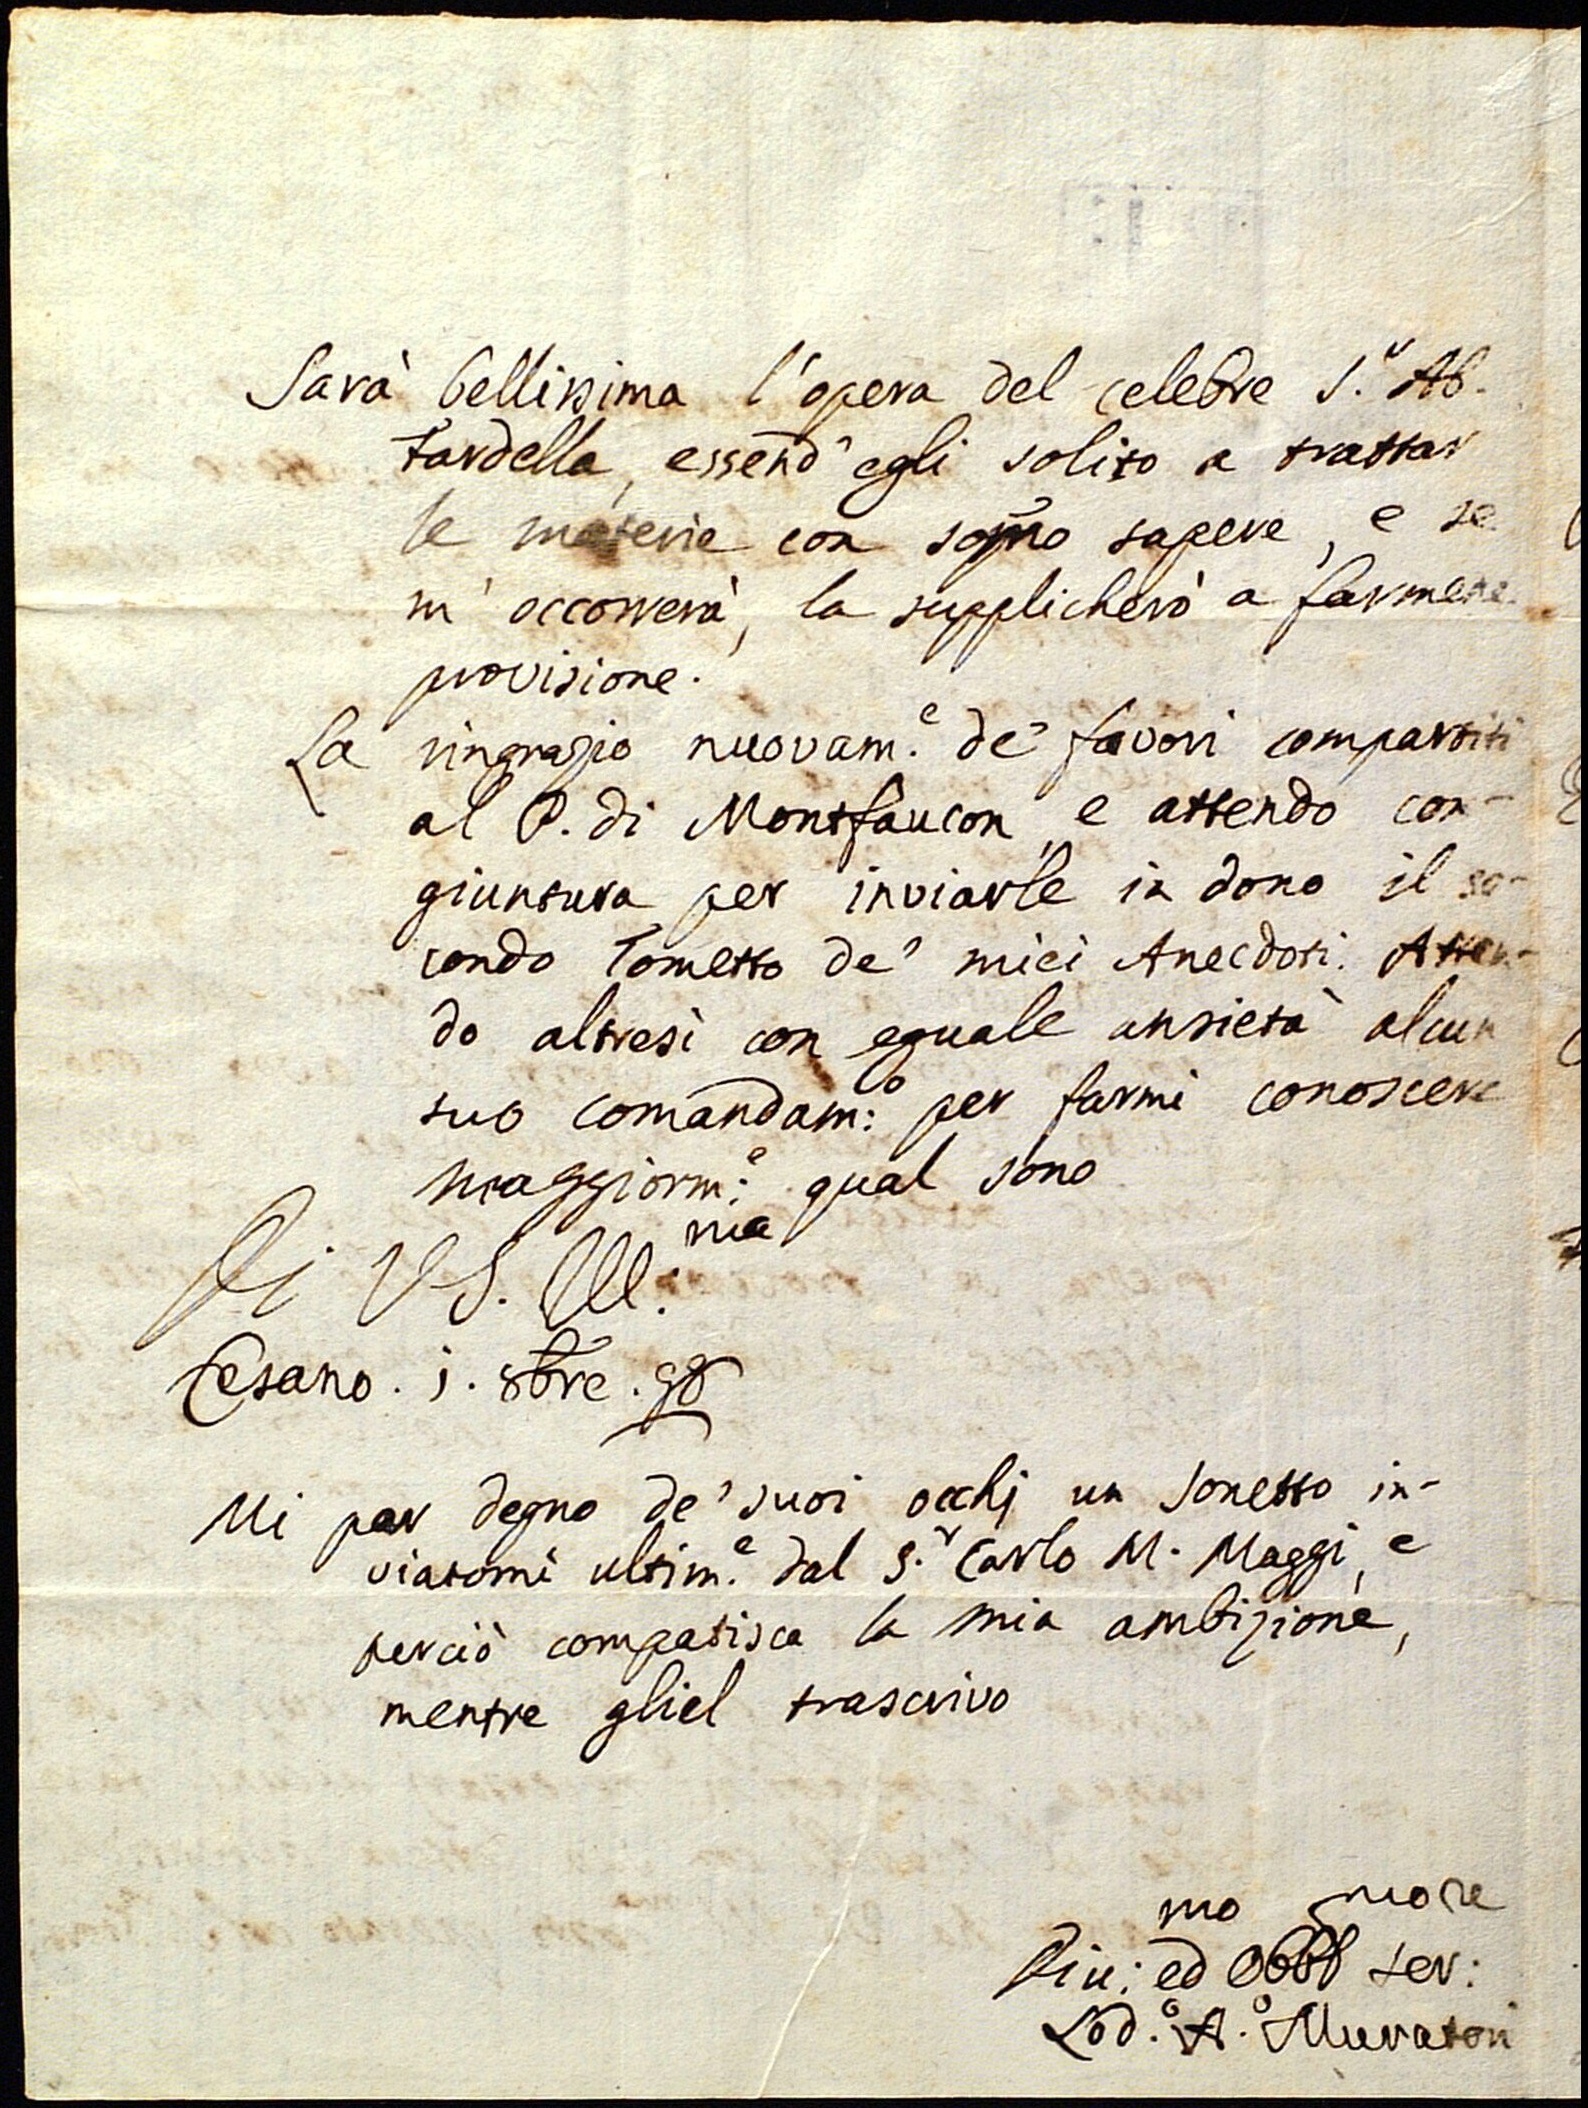 Sarà bellissima l'opera del celebre S.r Ab.
Fardella, essend'egli solito a trattar
le materie con som̃o sapere, e se
m'occorrerà, la supplicherò a farmene
provisione.
La ringrazio nuovam.e de' favori compartiti
al P. di Montfaucon, e attendo con-
giuntura per inviarle in dono il se-
condo Tometto de' miei Anecdoti. Atten-
do altresì con eguale ansietà alcun
suo comandam:o per farmi conoscere
maggiorm:e qual sono
Di V.S. Ill:ma
Cesano. j. 8bre. 98
Mi par degno de' suoi occhj un Sonetto in-
viatomi ultim.e dal S.r Carlo M. Maggi, e
perciò compatisca la mia ambizione,
mentre gliel trascrivo
Div:mo ed Obb ser:
Lod.o A.o Muratori